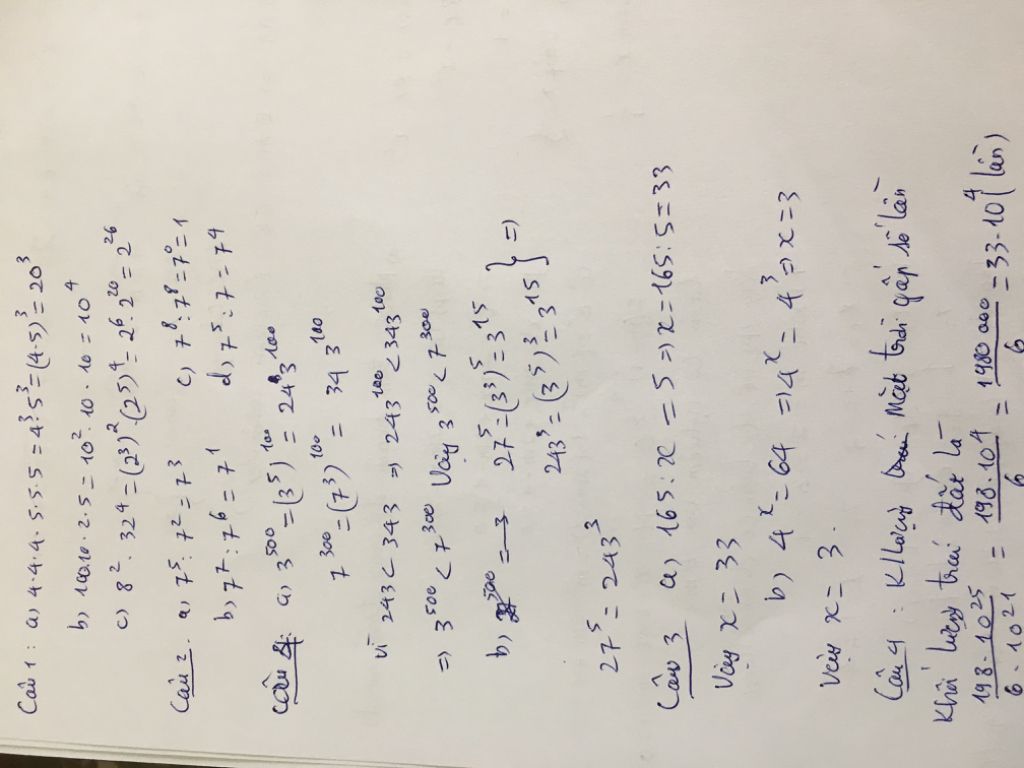 Câu 1: a, 4.4.4.5.5.5 = 4³.5³ = (4.5)³ = 20³
b, 100.10.2.5 = 10².10.10 = 10⁴
c, 8².32⁴ = (2³)².(2⁵)⁴ = 2⁶.2²⁰ = 2²⁶
Câu 2. a, 7⁵:7² = 7³ c, 7⁸:7⁸ = 7⁰ = 1
b, 7⁷:7⁶ = 7¹ d, 7⁵:7 = 7⁴
Câu a, 3⁵⁰⁰ = (3⁵)¹⁰⁰ = 243¹⁰⁰
7³⁰⁰ = (7³)¹⁰⁰ = 343¹⁰⁰
Vì 243 < 343 => 243¹⁰⁰ < 343¹⁰⁰
=> 3⁵⁰⁰ < 7³⁰⁰ Vậy 3⁵⁰⁰ < 7³⁰⁰
b, 27⁵ = (3³)⁵ = 3¹⁵ } =>
243³ = (3⁵)³ = 3¹⁵
27⁵ = 243³
Câu 3 a, 165 : x = 5 => x = 165 : 5 = 33
Vậy x = 33
b, 4ˣ = 64 => 4ˣ = 4³ => x = 3
Vậy x = 3.
Câu 4: K lượng Mặt trời gấp số lần
Khối lượng trái đất là
198.10²⁵ / 6.10²¹ = 198.10⁴ / 6 = 1980 000 / 6 = 33.10⁴ (lần)